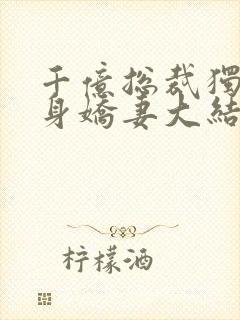 千億總裁獨
身嬌妻大結
柠檬酒